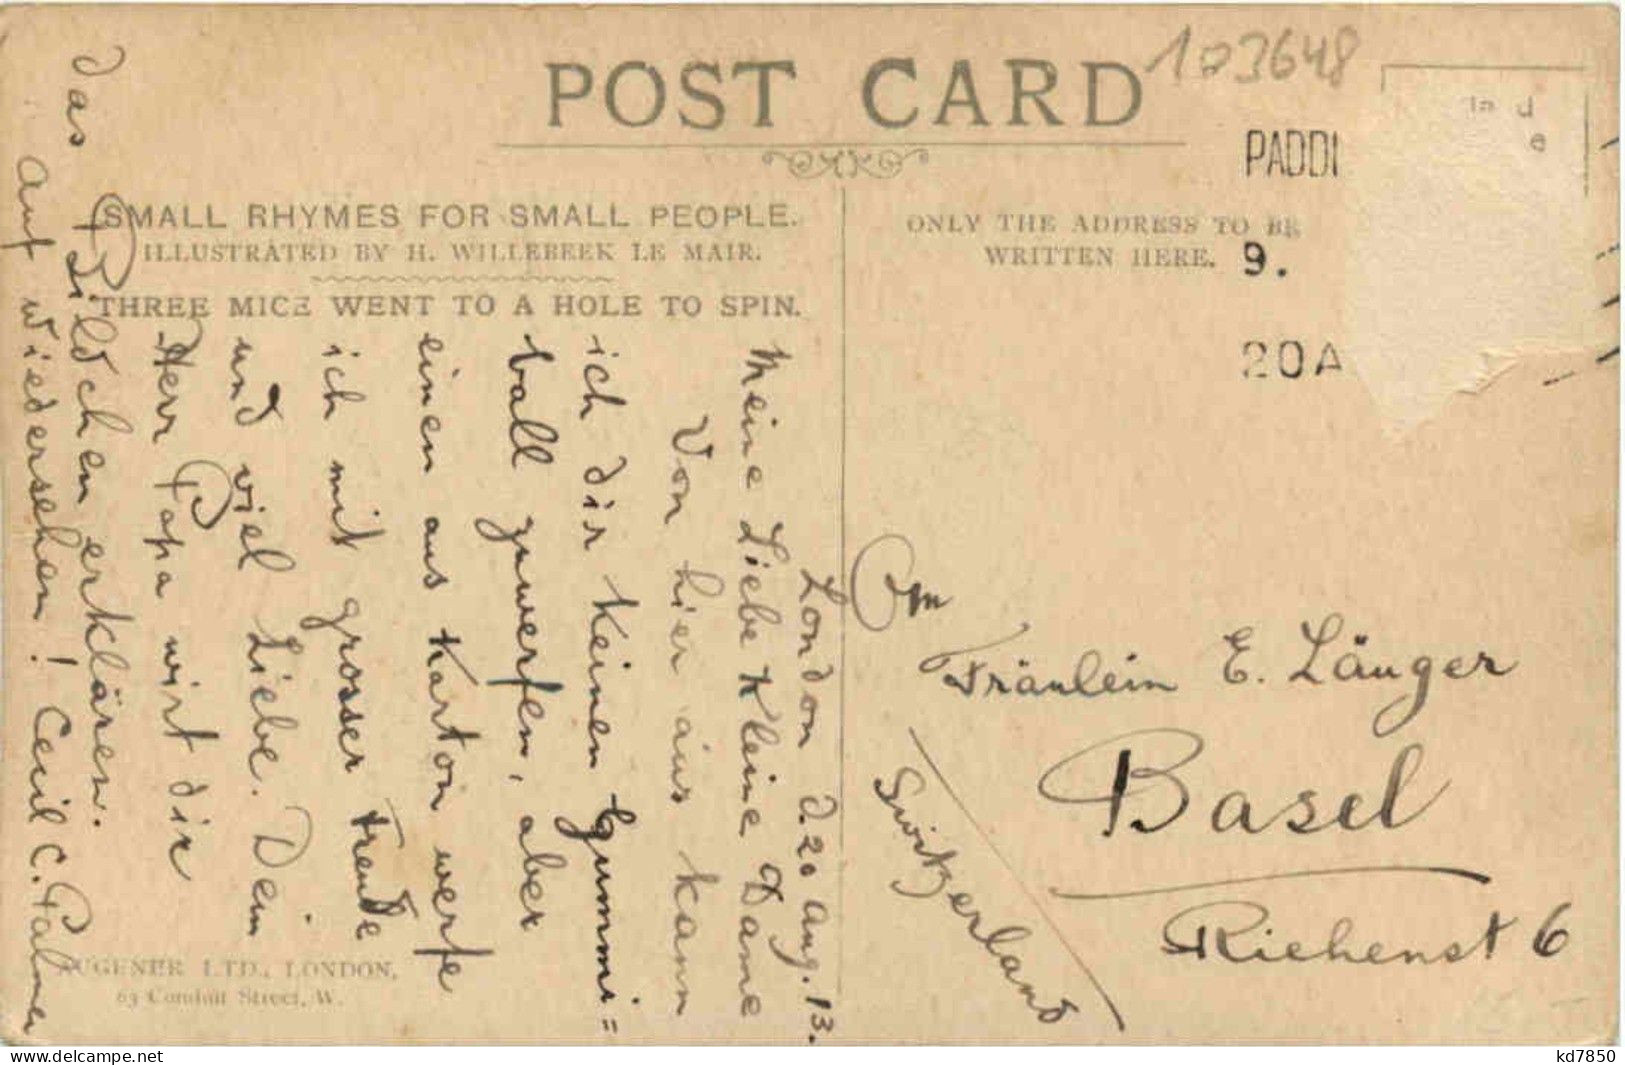 103648
POST CARD
In d
e
PADDI
9.
20A
SMALL RHYMES FOR SMALL PEOPLE.
ILLUSTRATED BY H. WILLEBEEK LE MAIR.
THREE MICE WENT TO A HOLE TO SPIN.
ONLY THE ADDRESS TO BE
WRITTEN HERE.
London d. 20 Aug. 13.
Meine Liebe Kleine Dame
Von hier aus kann
ich dir keinen Gummi=
ball zuwerfen, aber
einen aus Karton werfe
ich mit grosser Freude
und viel Liebe. Dein
Herr Papa wird dir
das Bildchen erklären.
Auf Wiedersehen! Cecil C. Palmer
An
Fräulein E. Länger
Basel
Riehenst 6
Switzerland
AUGENER LTD., LONDON,
63 Conduit Street, W.
kd7850